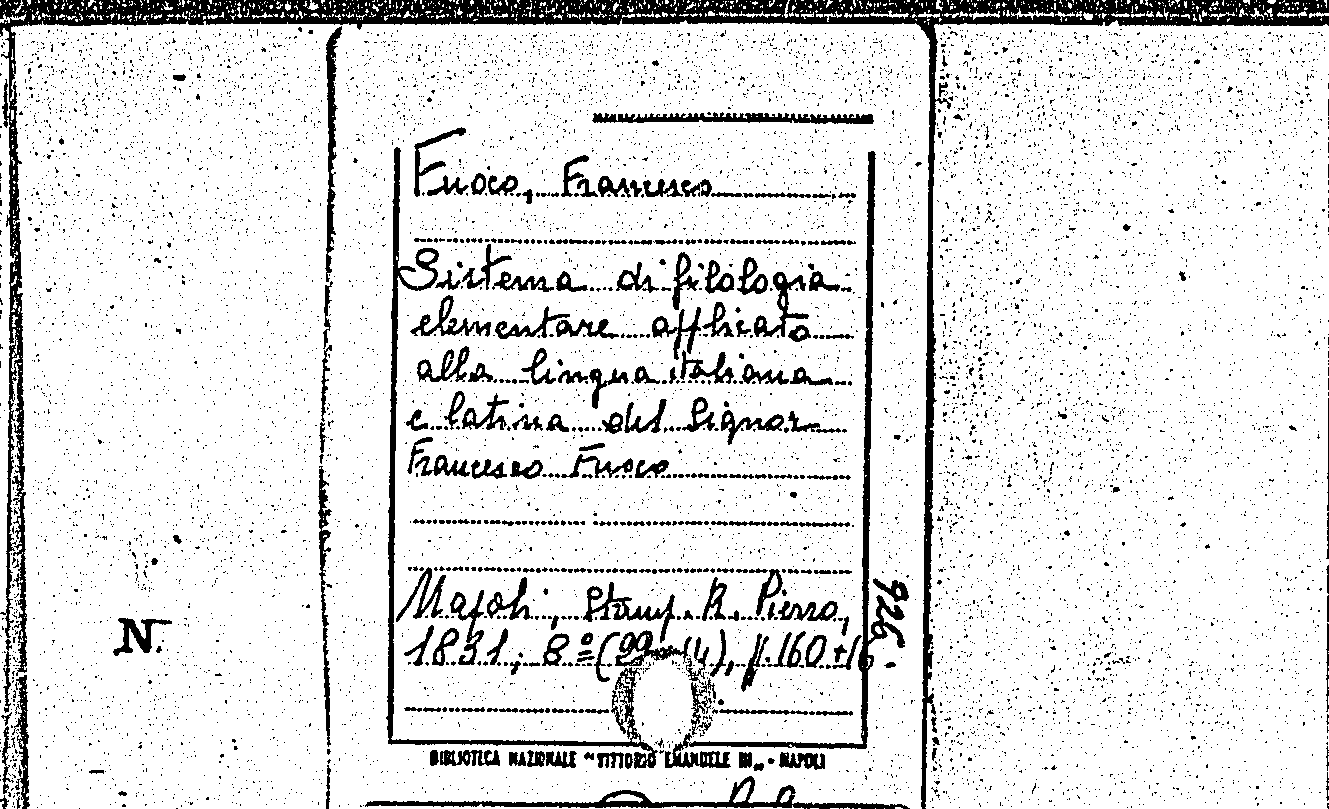 Fuoco, Francesco
Sistema di filologia
elementare applicato
alla lingua italiana
e latina del Signor
Francesco Fuoco
Napoli, Stamp. R. Pierro,
1831; 8º (22 14), p. 160+16.
926
N.
BIBLIOTECA NAZIONALE "VITTORIO EMANUELE III" - NAPOLI